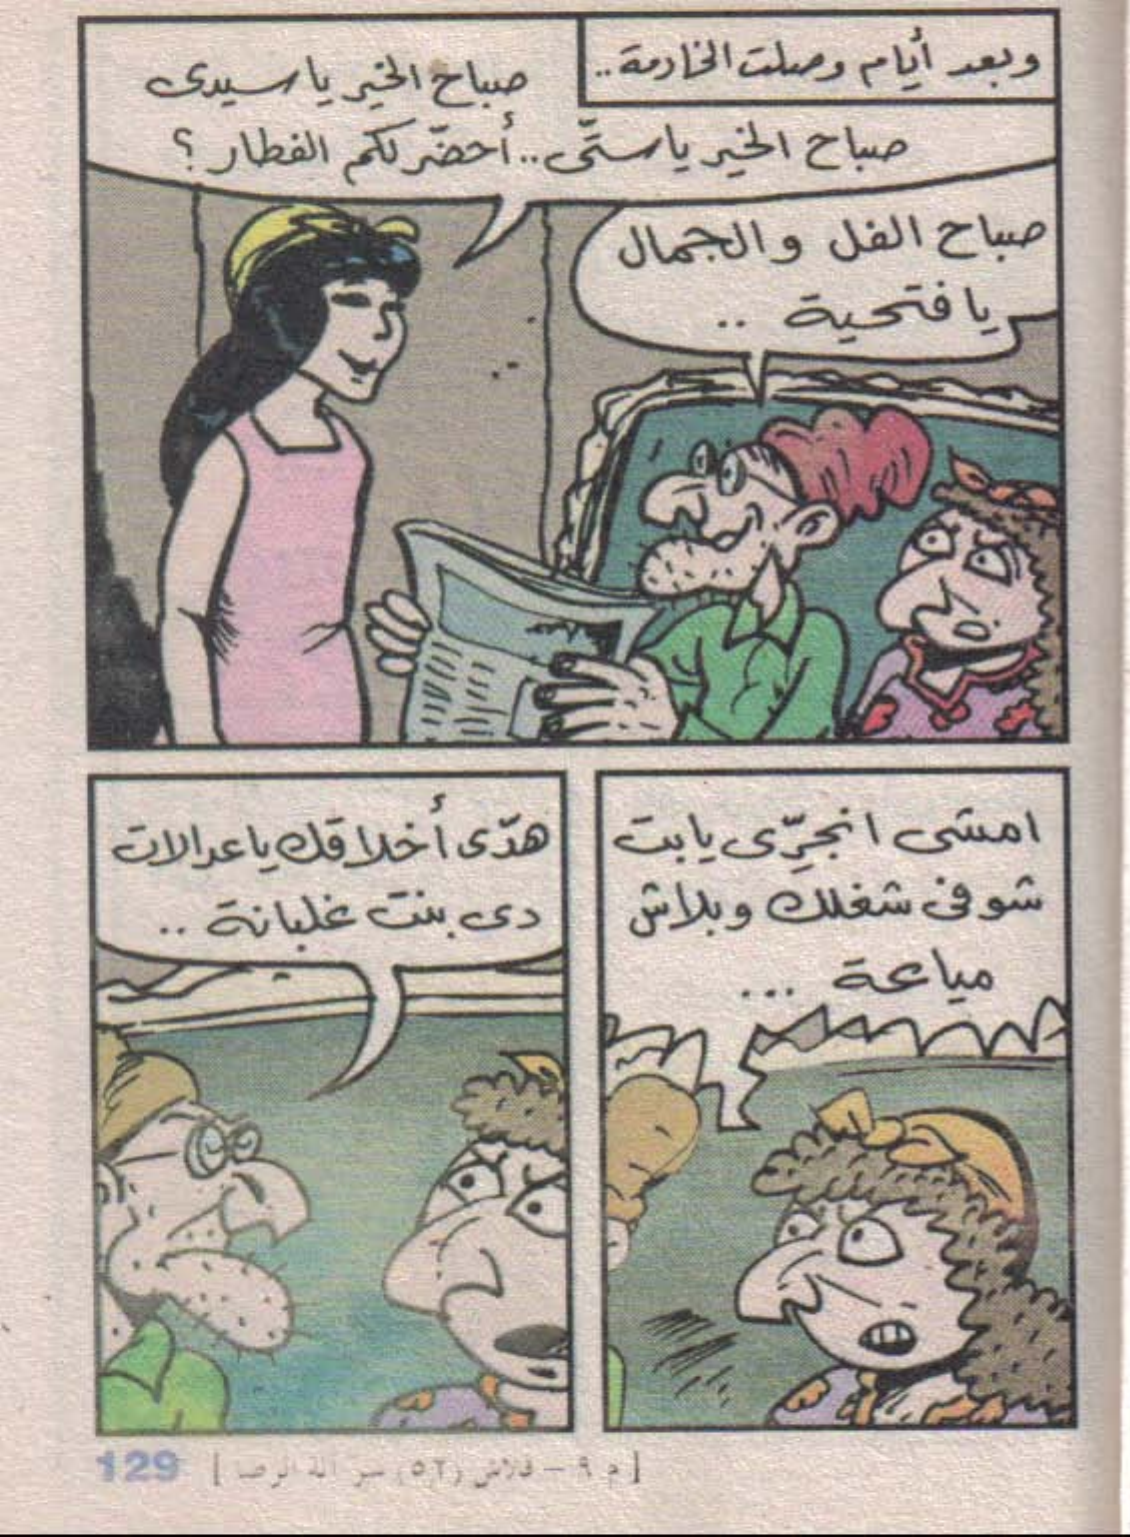 وبعد أيام وصلت الخادمة..
صباح الخير ياسيدى
صباح الخير ياستّى.. أحضّر لكم الفطار؟
صباح الفل والجمال
يا فتحية ..
امشى انجرّى يابت
شوفى شغلك وبلاش
مياعة ...
هدّى أخلاقك ياعدالات
دى بنت غلبانة ..
[ م ٩ - فلاش (٥٢) سر آلة الرصا ]
129